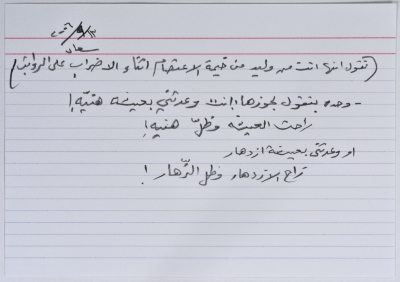 سعاد
(تقول انها اتت من وليد من خيمة الاعتصام اثناء الاضراب على الرواتب)
- وحده بتقول لجوزها: انت وعدتني بعيشة هنيّه!
راحت العيشه وظلّ هنيه!
او وعدتني بعيشة ازدهار
راح الازدهار وظل الزّهار!